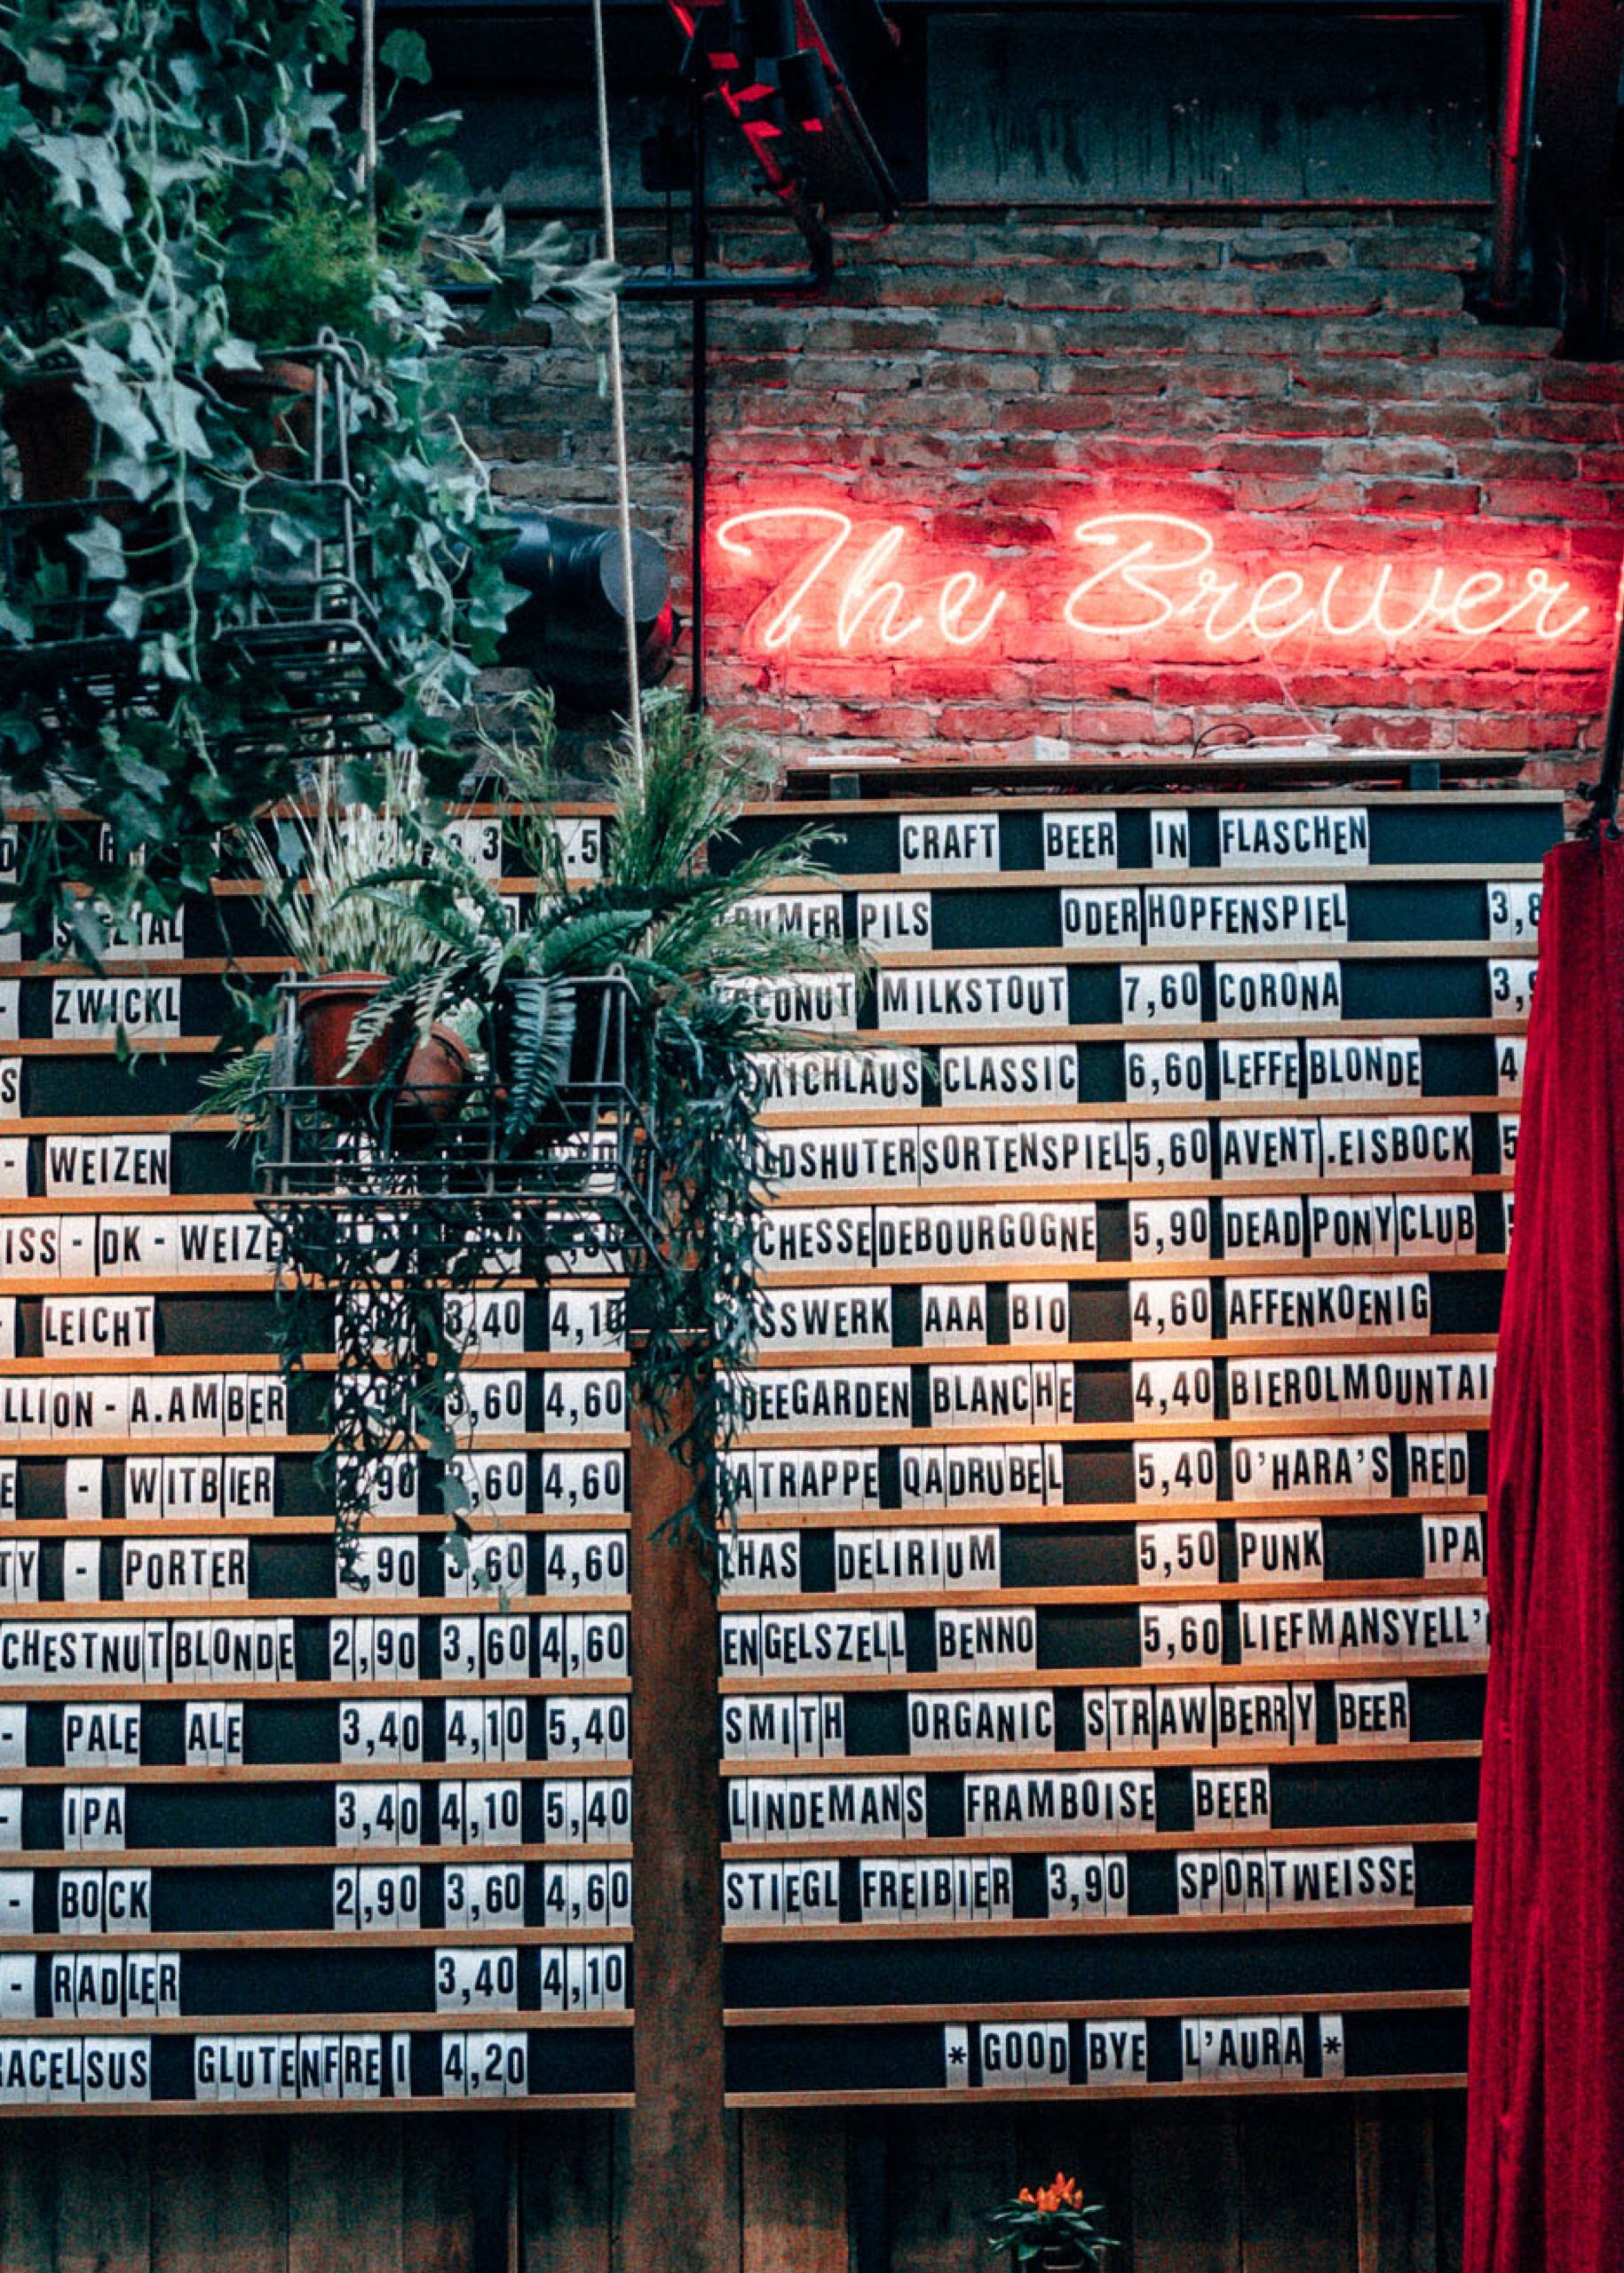 The Brewer
.3 .5
SPEZIAL
- ZWICKL
- WEIZEN
ISS - DK - WEIZE
LEICHT 3,40 4,10
LLION - A.AMBER 3,60 4,60
- WITBIER 2,90 3,60 4,60
TY - PORTER 2,90 3,60 4,60
CHESTNUT BLONDE 2,90 3,60 4,60
- PALE ALE 3,40 4,10 5,40
- IPA 3,40 4,10 5,40
- BOCK 2,90 3,60 4,60
- RADLER 3,40 4,10
RACELSUS GLUTENFREI 4,20
CRAFT BEER IN FLASCHEN
RUMER PILS ODER HOPFENSPIEL 3,8
OCONUT MILKSTOUT 7,60 CORONA 3,9
MICHLAUS CLASSIC 6,60 LEFFE BLONDE 4
LDSHUTERSORTENSPIEL 5,60 AVENT.EISBOCK 5
CHESSE DEBOURGOGNE 5,90 DEAD PONY CLUB
SSWERK AAA BIO 4,60 AFFENKOENIG
OEEGARDEN BLANCHE 4,40 BIEROLMOUNTAI
LATRAPPE QADRUBEL 5,40 O'HARA'S RED
LHAS DELIRIUM 5,50 PUNK IPA
ENGELSZELL BENNO 5,60 LIEFMANSYELL'
SMITH ORGANIC STRAWBERRY BEER
LINDEMANS FRAMBOISE BEER
STIEGL FREIBIER 3,90 SPORTWEISSE
* GOOD BYE L'AURA *